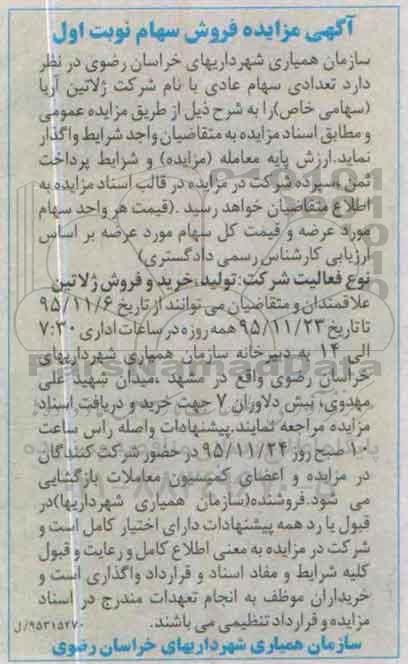 آگهی مزایده فروش سهام نوبت اول
سازمان همیاری شهرداریهای خراسان رضوی در نظر
دارد تعدادی سهام عادی با نام شرکت ژلاتین آریا
(سهامی خاص)را به شرح ذیل از طریق مزایده عمومی
و مطابق اسناد مزایده به متقاضیان واجد شرایط واگذار
نماید.ارزش پایه معامله (مزایده) و شرایط پرداخت
ثمن ،سپرده شرکت در مزایده در قالب اسناد مزایده به
اطلاع متقاضیان خواهد رسید .(قیمت هر واحد سهام
مورد عرضه و قیمت کل سهام مورد عرضه بر اساس
ارزیابی کارشناس رسمی دادگستری)
نوع فعالیت شرکت:تولید،خرید و فروش ژلاتین
علاقمندان و متقاضیان می توانند از تاریخ ۹۵/۱۱/۶
تا تاریخ ۹۵/۱۱/۲۳ همه روزه در ساعات اداری ۷:۳۰
الی ۱۴ به دبیرخانه سازمان همیاری شهرداریهای
خراسان رضوی واقع در مشهد ،میدان شهید علی
مهدوی، نبش دلاوران ۷ جهت خرید و دریافت اسناد
مزایده مراجعه نمایند.پیشنهادات واصله راس ساعت
۱۰ صبح روز ۹۵/۱۱/۲۴ در حضور شرکت کنندگان
در مزایده و اعضای کمیسیون معاملات بازگشایی
می شود.فروشنده(سازمان همیاری شهرداریها)در
قبول یا رد همه پیشنهادات دارای اختیار کامل است و
شرکت در مزایده به معنی اطلاع کامل و رعایت و قبول
کلیه شرایط و مفاد اسناد و قرارداد واگذاری است و
خریداران موظف به انجام تعهدات مندرج در اسناد
مزایده و قرارداد تنظیمی می باشند. ۹۵۳۱۵۲۷۰/ل
سازمان همیاری شهرداریهای خراسان رضوی
ParsNamadData